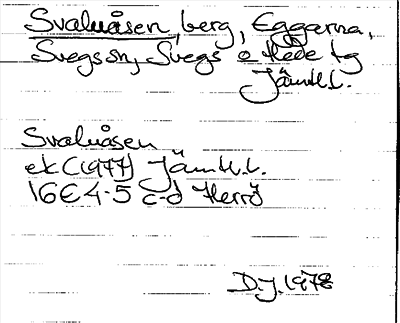 Svaluåsen, berg, Eggarna,
Svegs sn, Svegs o Hede tg
Jämtl.l.
Svaluåsen
ek C(1977) Jämtl.l.
16E 4-5 c-d Herrö
D.J. 1978